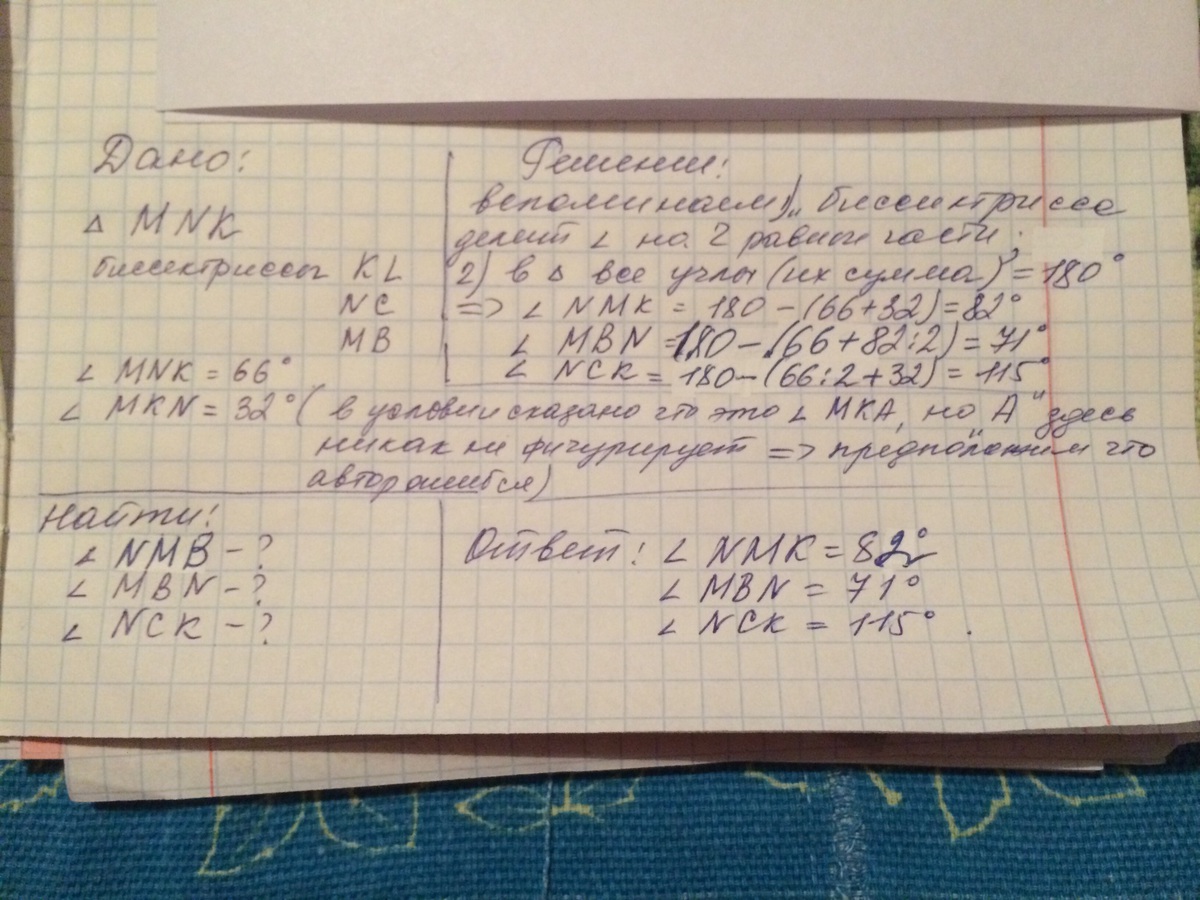 Дано:
△ MNK
биссектриссы KL
NC
MB
∠ MNK = 66°
∠ MKN = 32° ( в условии сказано что это ∠ MKA, но "A" здесь
никак не фигурирует => предположим что
автор ошибся)
Решение:
вспоминаем 1) биссектрисса
делит ∠ на 2 равные части;
2) в △ все углы (их сумма) = 180°
=> ∠ NMK = 180 - (66+32) = 82°
∠ MBN = 180 - (66+82:2) = 71°
∠ NCK = 180 - (66:2+32) = 115°
Найти:
∠ NMB - ?
∠ MBN - ?
∠ NCK - ?
Ответ: ∠ NMK = 82°
∠ MBN = 71°
∠ NCK = 115° .